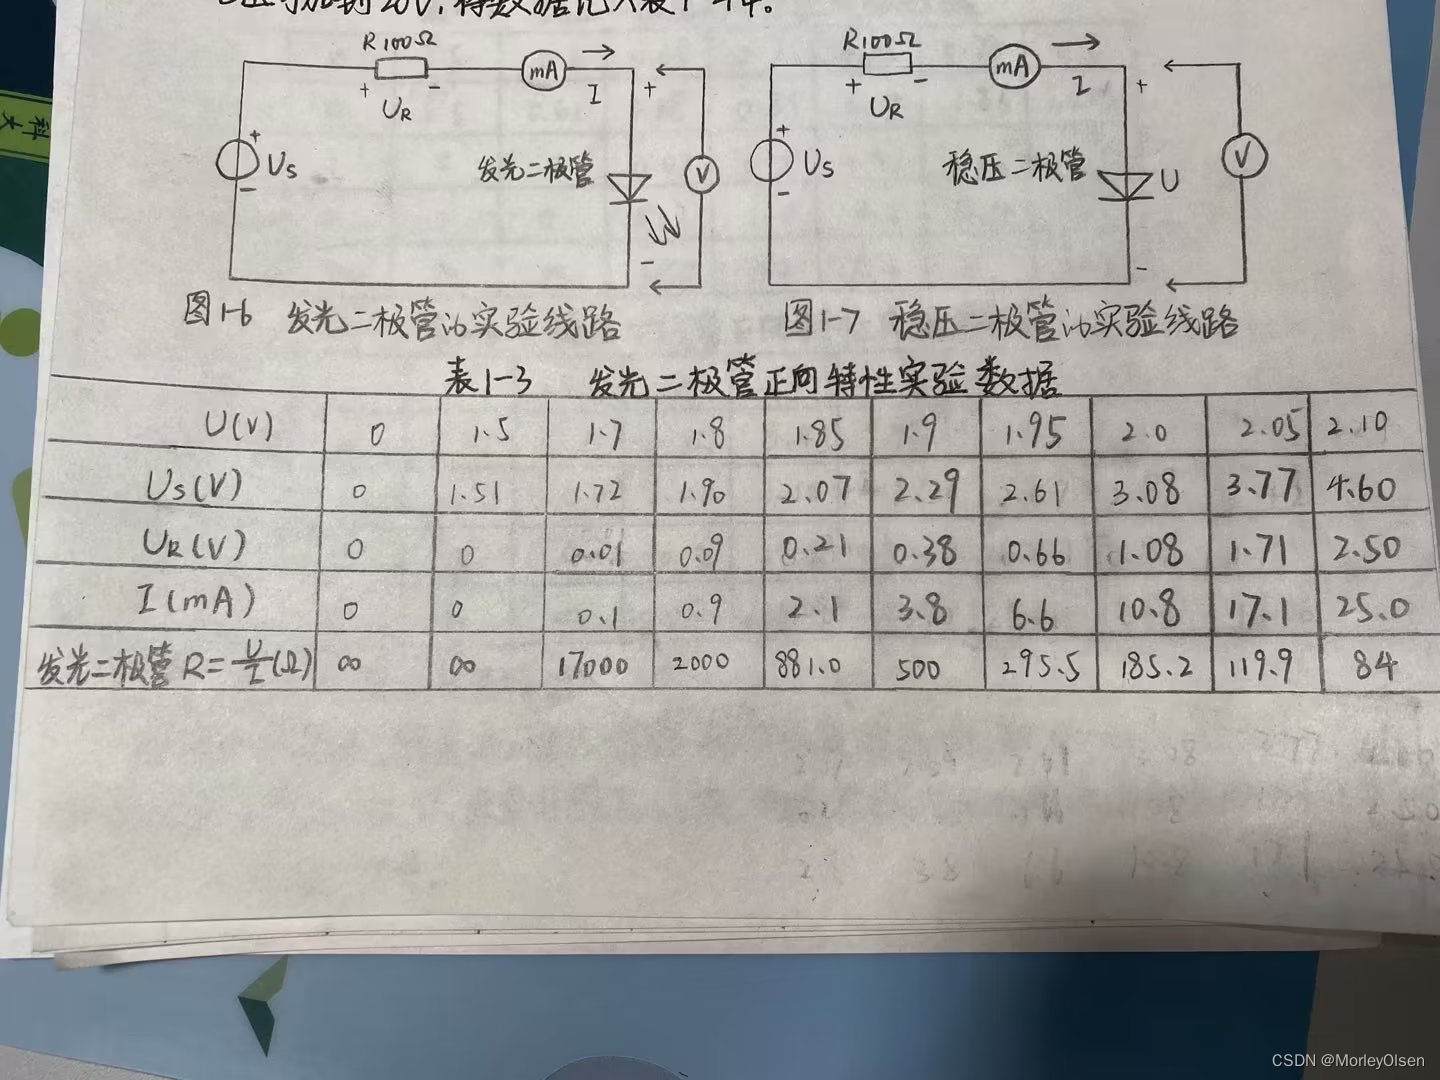 科大
加到20V,得数据记入表1-4。
R100Ω
mA
I
+ UR -
US
发光二极管
V
R100Ω
mA
I
+ UR -
US
稳压二极管
U
V
图1-6 发光二极管的实验线路
图1-7 稳压二极管的实验线路
表1-3 发光二极管正向特性实验数据
U(V) 0 1.5 1.7 1.8 1.85 1.9 1.95 2.0 2.05 2.10
US(V) 0 1.51 1.72 1.90 2.07 2.29 2.61 3.08 3.77 4.60
UR(V) 0 0 0.01 0.09 0.21 0.38 0.66 1.08 1.71 2.50
I(mA) 0 0 0.1 0.9 2.1 3.8 6.6 10.8 17.1 25.0
发光二极管 R=U/I(Ω) ∞ ∞ 17000 2000 881.0 500 295.5 185.2 119.9 84
CSDN @MorleyOlsen